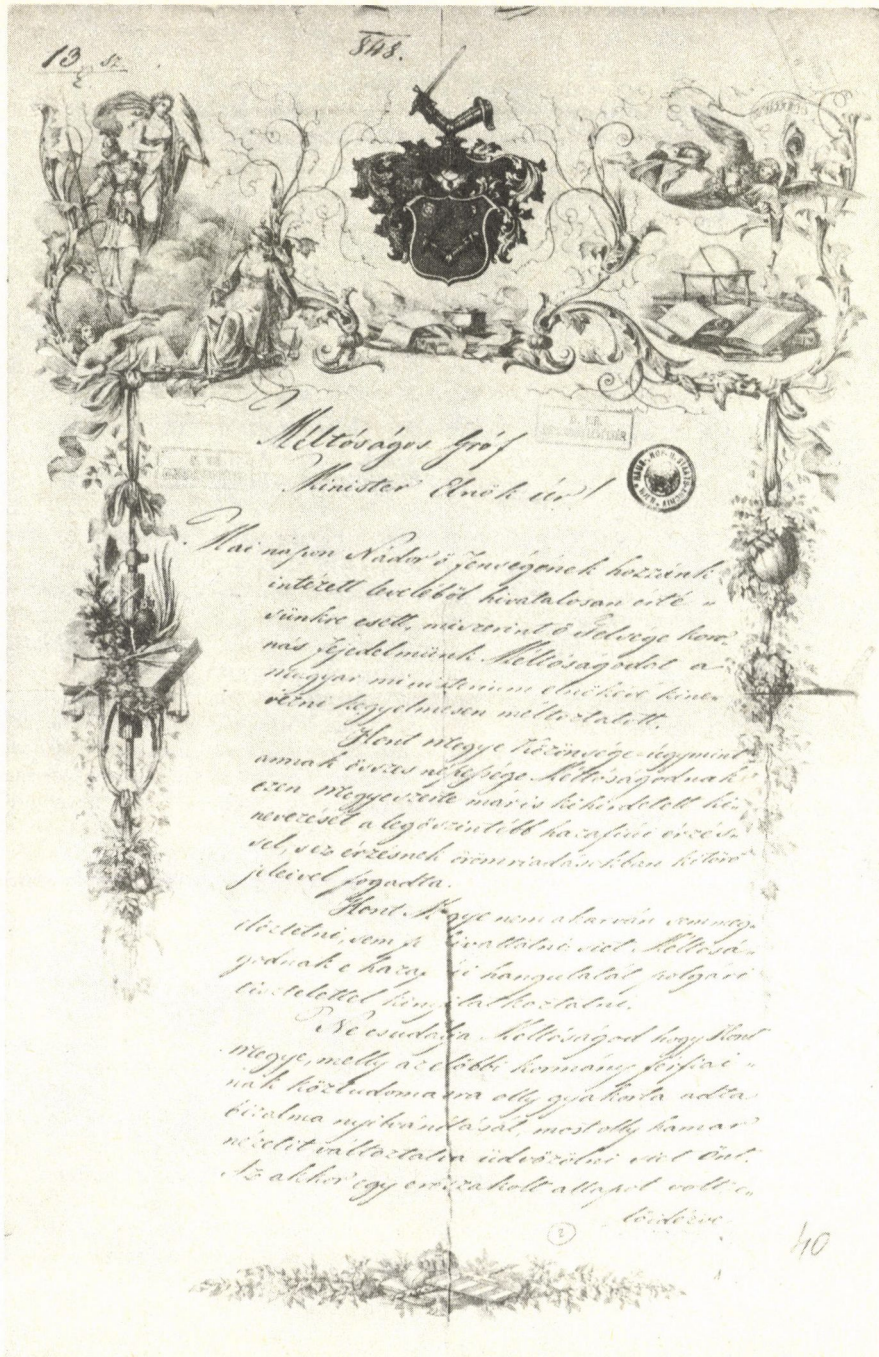 13 sz
848.
Méltóságos Gróf
Minister Elnök úr!
Mai napon Nádor ő fenségének hozzánk
intézett leveléből hivatalosan érté„
sünkre esett, miszerint ő Felsége koro„
nás fejedelmünk Méltóságodat a
magyar ministerium elnökévé kine„
vezni kegyelmesen méltóztatott.
Hont megye Közönsége úgymint
annak összes népessége Méltóságodnak
ezen megyeszerte már is kihirdetett ki„
nevezését a legőszintébb hazafiúi érzés„
sel, s ez érzésnek örömriadásokban kitörő
jeleivel fogadta.
Hont Megye nem akarván sem meg„
előztetni, sem hivattatni siet Méltósá„
godnak e hazafiúi hangulatát polgári
tisztelettel kinyilatkoztatni.
Ne csudálja Méltóságod hogy Hont
megye, melly az előbbi kormány férfiai„
nak köztudomásra olly gyakorta adta
bizalma nyilvánítását, most olly hamar
nézetit változtatva üdvözölni siet Önt.
Az akkor egy erőszakolt állapot volt e„
lőidézve
2
40